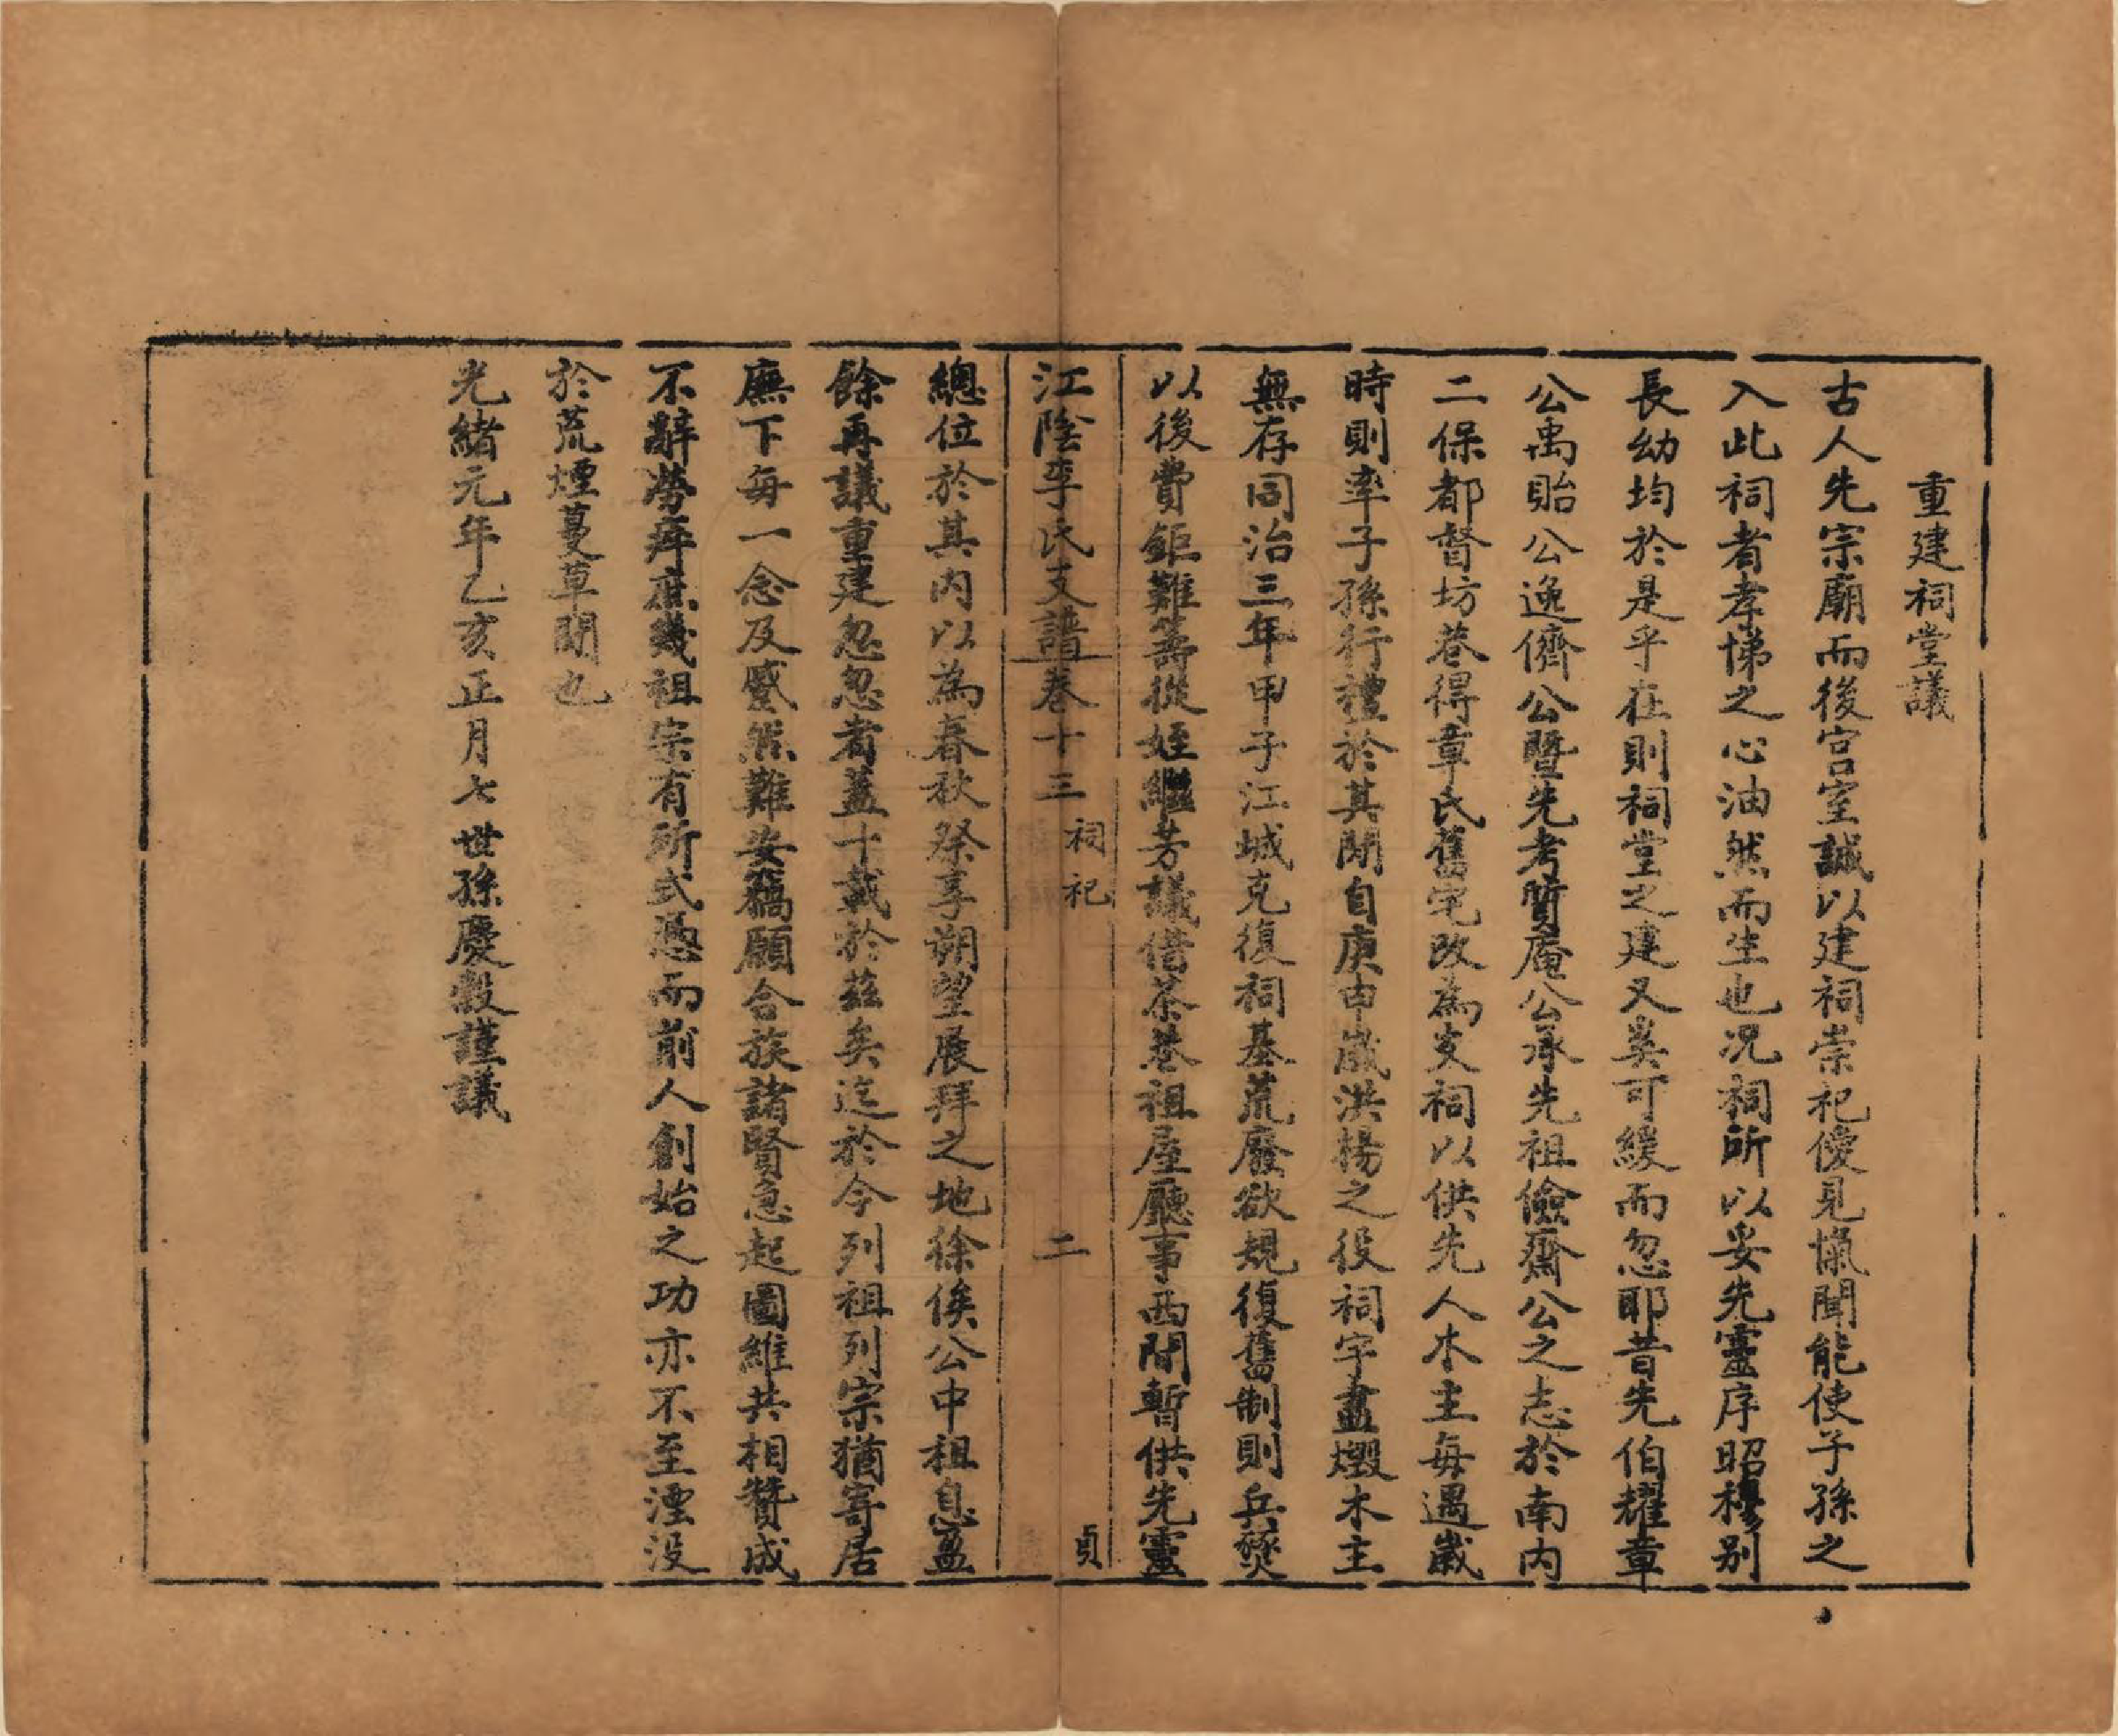 重建祠堂議
古人先宗廟而後宫室誠以建祠崇祀僾見愾聞能使子孫之
入此祠者孝悌之心油然而生也况祠所以妥先靈序昭穆别
長幼均於是乎在則祠堂之建又奚可緩而忽耶昔先伯耀章
公禹貽公逸儕公暨先考質庵公承先祖儉齋公之志於南内
二保都督坊巷得章氏舊宅改為支祠以供先人木主每遇歲
時則率子孫行禮於其間自庚申歲洪楊之役祠宇盡燬木主
無存同治三年甲子江城克復祠基荒廢欲規復舊制則兵燹
以後費鉅難籌從姪繼芳議借茶巷祖屋廳事西間暫供先靈
江陰李氏支譜卷十三 祠祀 二 貞
總位於其内以為春秋祭享朔望展拜之地徐俟公中祖息盈
餘再議重建忽忽者蓋十載於茲矣迄於今列祖列宗猶寄居
廡下每一念及蹙然難安竊願合族諸賢急起圖維共相贊成
不辭勞瘁庶幾祖宗有所式憑而前人創始之功亦不至湮没
於荒煙蔓草間也
光緒元年乙亥正月七世孫慶穀謹議